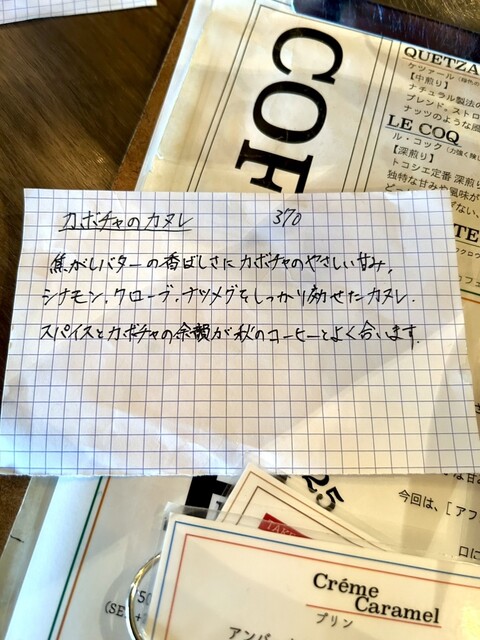 COF
QUETZA
ケツァール
【中煎り】
ナチュラル製法の
ブレンド。ストロ
ナッツのような風
LE COQ
ル・コック
【深煎り】
トコシエ定番 深煎り
独特な甘みや風味が
カボチャのカヌレ 370
焦がしバターの香ばしさにカボチャのやさしい甘み、
シナモン、クローブ、ナツメグをしっかり効せたカヌレ。
スパイスとカボチャの余韻が秋のコーヒーとよく合います。
25
今回は、[アフ
口に
50
(SE
Créme
Caramel
プリン